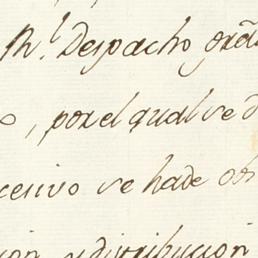 Rl. Despacho
, por el qual se
cesivo se hade ob
cion y distribucion